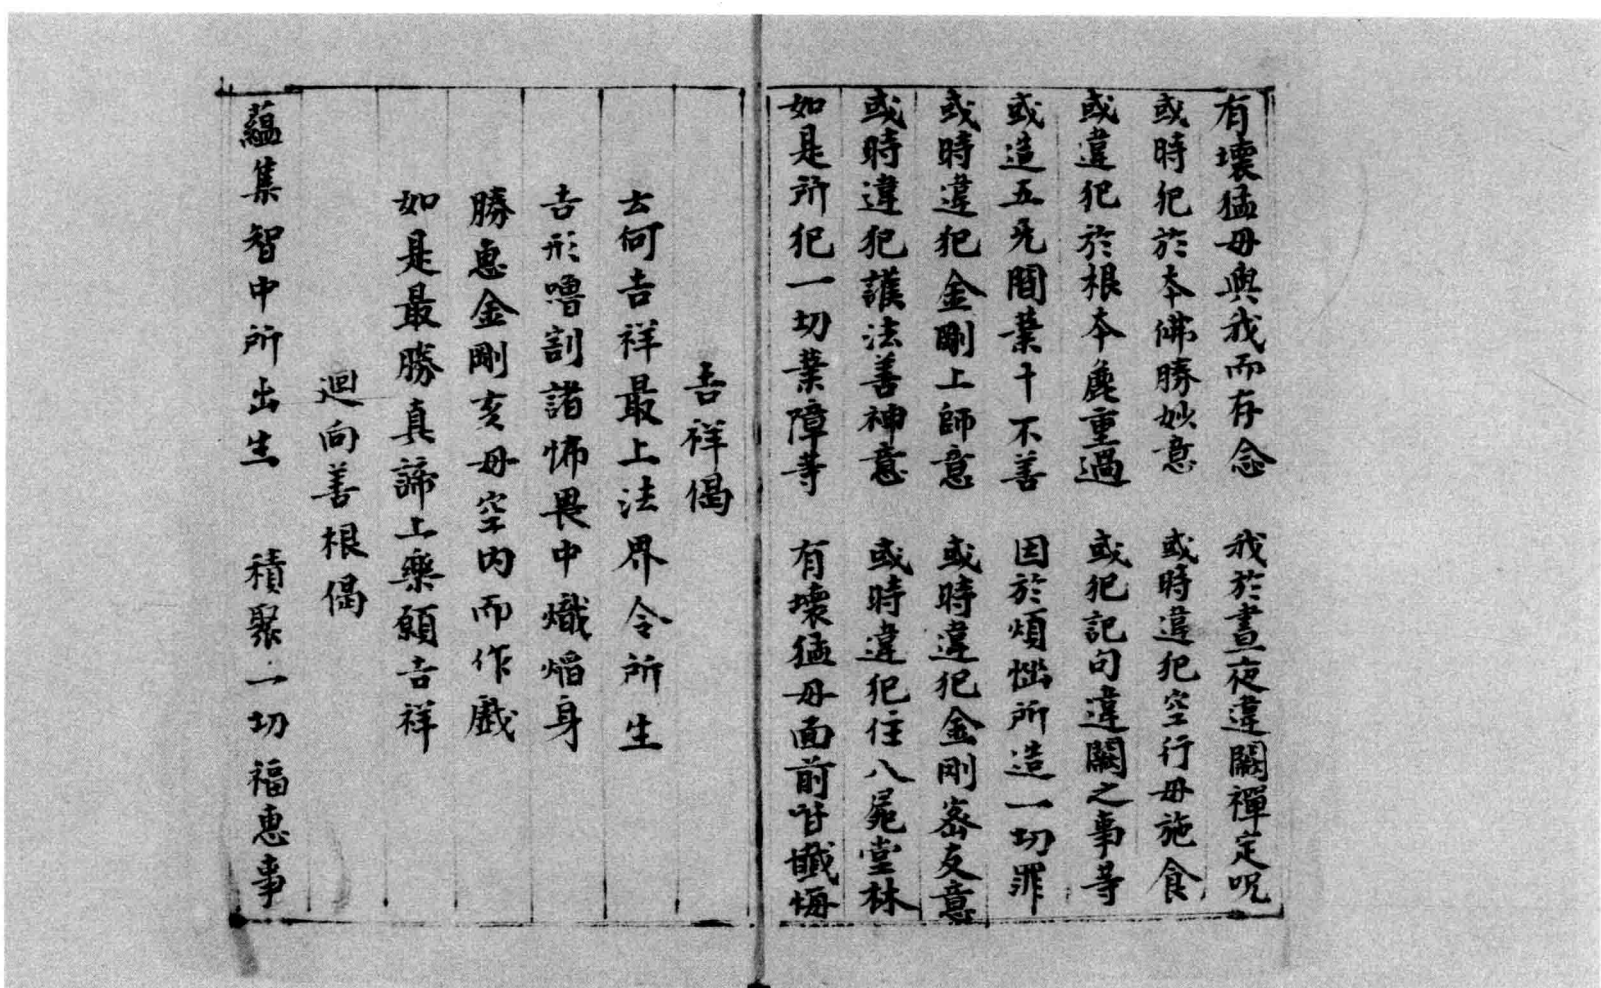 有壞猛母與我而存念　我於晝夜違闕禪定呪
或時犯於本佛勝妙意　或時違犯空行母施食
或違犯於根本麁重過　或犯記句違闕之事等
或造五无間業十不善　因於煩惱所造一切罪
或時違犯金剛上師意　或時違犯金剛密友意
或時違犯護法善神意　或時違犯住八屍堂林
如是所犯一切業障等　有壞猛母面前皆懺悔
吉祥偈
云何吉祥最上法界令所生
吉形嚕割諸怖畏中熾焰身
勝惠金剛亥母空內而作戲
如是最勝真諦上樂願吉祥
迴向善根偈
蘊集智中所出生　積聚一切福惠事